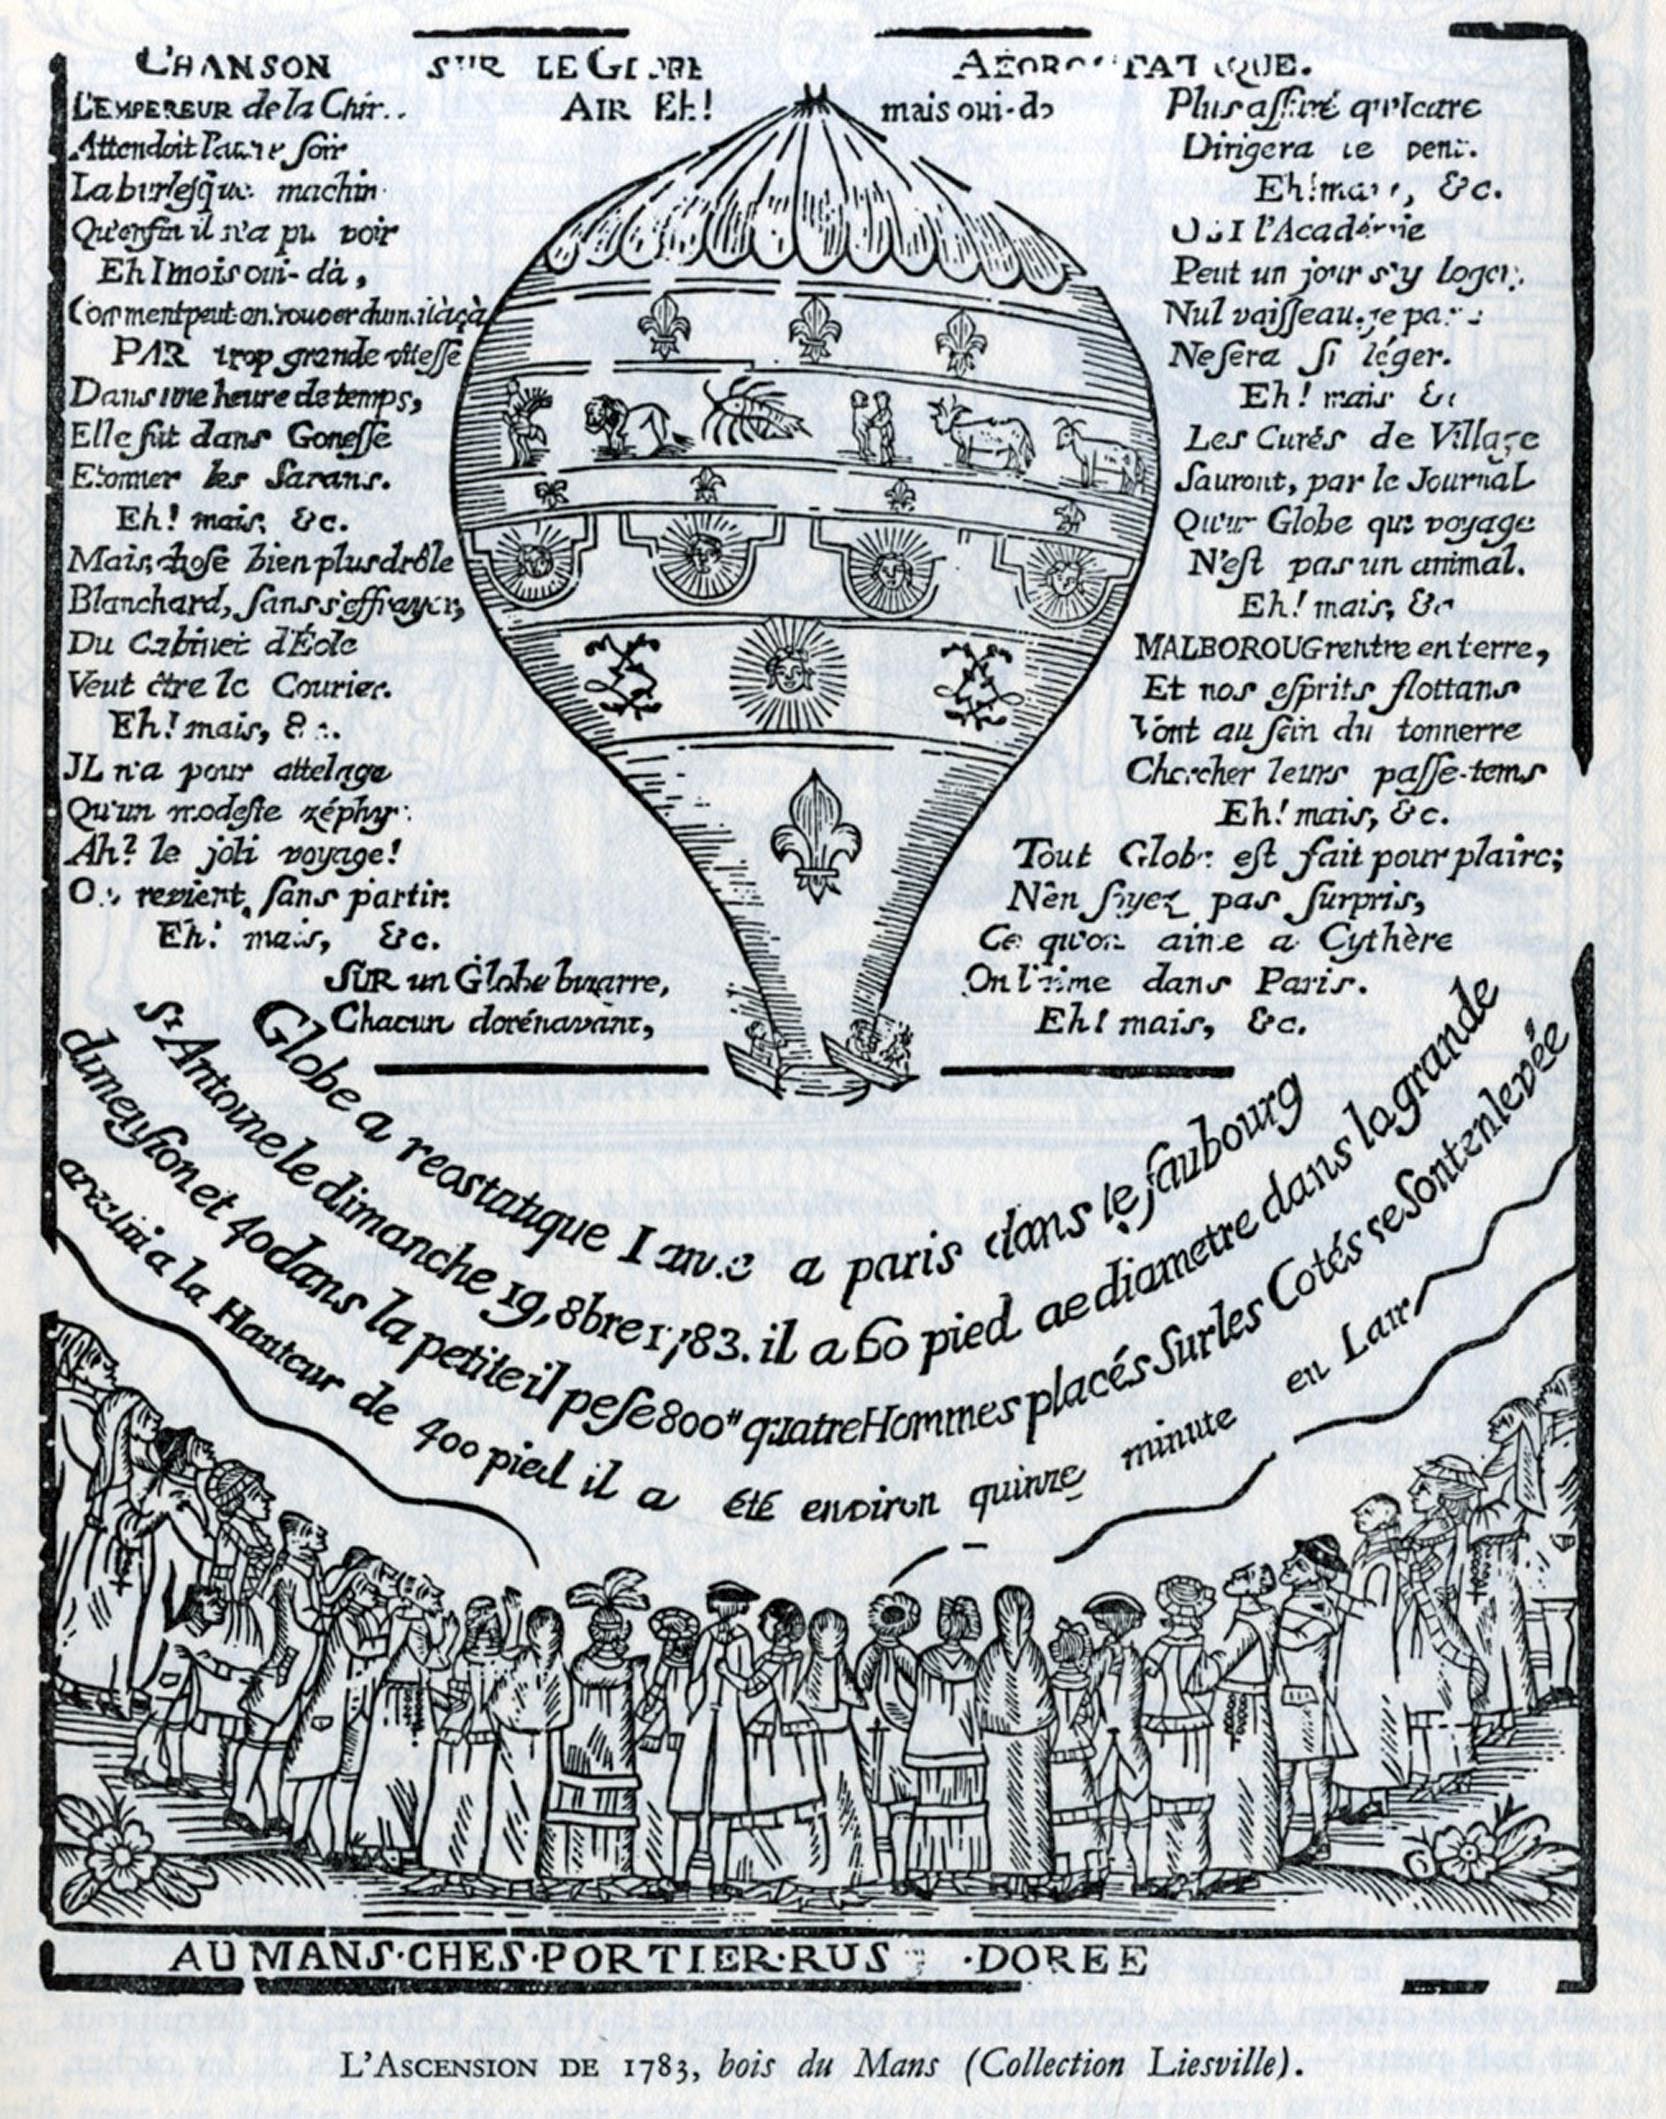 CHANSON SUR LE GLOBE AËOROSTATIQUE.
AIR Eh! mais oui-da
L'EMPEREUR de la Chi
Attendoit l'autre ſoir
La burleſque machin
Qu'enfin il n'a pu voir
Eh! mois oui-dà,
Comment peut on
PAR trop grande viteſſe
Dans une heure de temps,
Elle fut dans Goneſſe
Etonner les Sarans.
Eh! mais, &c.
Mais, choſe bien plus drôle
Blanchard, ſans s'effrayer,
Du Cabinet d'Éole
Veut être le Courier.
Eh! mais, &c.
JL n'a pour attelage
Qu'un modeſte zéphyr
Ah? le joli voyage!
On revient, ſans partir.
Eh! mais, &c.
SUR un Globe bizarre,
Chacun dorénavant,
Plus aſſuré qu'Icare
Dirigera le vent.
Eh! mais, &c.
OUI l'Académie
Peut un jour s'y loger,
Nul vaiſſeau, je pa
Ne ſera ſi léger.
Eh! mais &c
Les Curés de Village
Sauront, par le Journal
Qu'un Globe qui voyage
N'eſt pas un animal.
Eh! mais, &c
MALBOROUG rentre en terre,
Et nos eſprits flottans
Vont au ſein du tonnerre
Chercher leurs paſſe-tems
Eh! mais, &c.
Tout Globe eſt fait pour plaire;
N'ên ſoyez pas ſurpris,
Ce qu'on aime a Cythère
On l'aime dans Paris.
Eh! mais, &c.
Globe a reostatique a paris dans le faubourg
St Antoine le dimanche 19, 8bre 1783. il a 60 pied de diametre dans la grande
dimenſion et 40 dans la petite il peſe 800" quatre Hommes placés Sur les Cotés se Sont enlevée
avec lui a la Hauteur de 400 pied il a été environ quinze minute en Lair
AU MANS·CHES·PORTIER·RUE ·DOREE
L'ASCENSION DE 1783, bois du Mans (Collection Liesville).